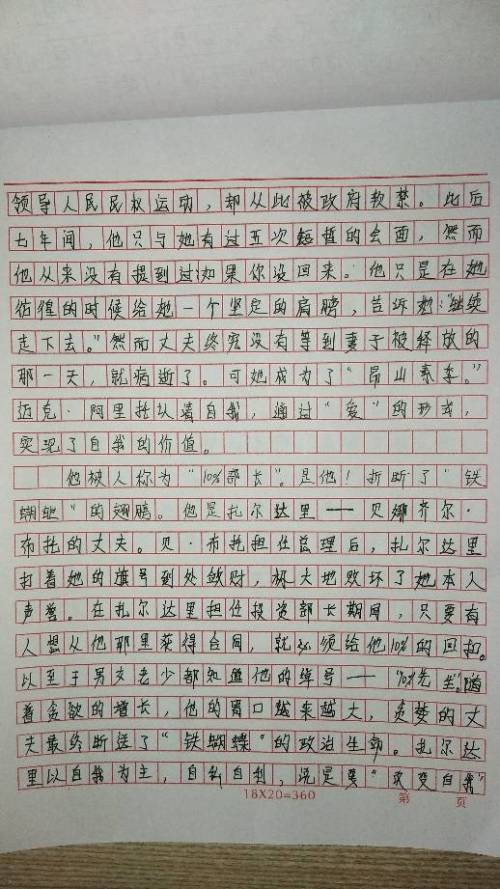 领导人民民权运动，却从此被政府软禁。此后
七年间，他只与她有过五次短暂的会面，然而
他从来没有提到过如果你没回来。他只是在她
彷徨的时候给她一个坚定的肩膀，告诉她："继续
走下去。"然而丈夫终究没有等到妻子被释放的
那一天，就病逝了。可她成为了"昂山素季。"
迈克·阿里托从着自我，通过"爱"的形式，
实现了自我的价值。
他被人称为"10%部长"。是他！折断了"铁
蝴蝶"的翅膀。他是扎尔达里——贝娜齐尔·
布托的丈夫。贝·布托担任总理后，扎尔达里
打着她的旗号到处敛财，极大地败坏了她本人
声誉。在扎尔达里担任投资部长期间，只要有
人想从他那里获得合同，就必须给他10%的回扣。
以至于男女老少都知道他的绰号——"10%先生"。随
着贪欲的增长，他的胃口越来越大，贪婪的丈
夫最终断送了"铁蝴蝶"的政治生命。扎尔达
里以自我为主，自私自利，说是要"改变自我"
18X20=360
第 页